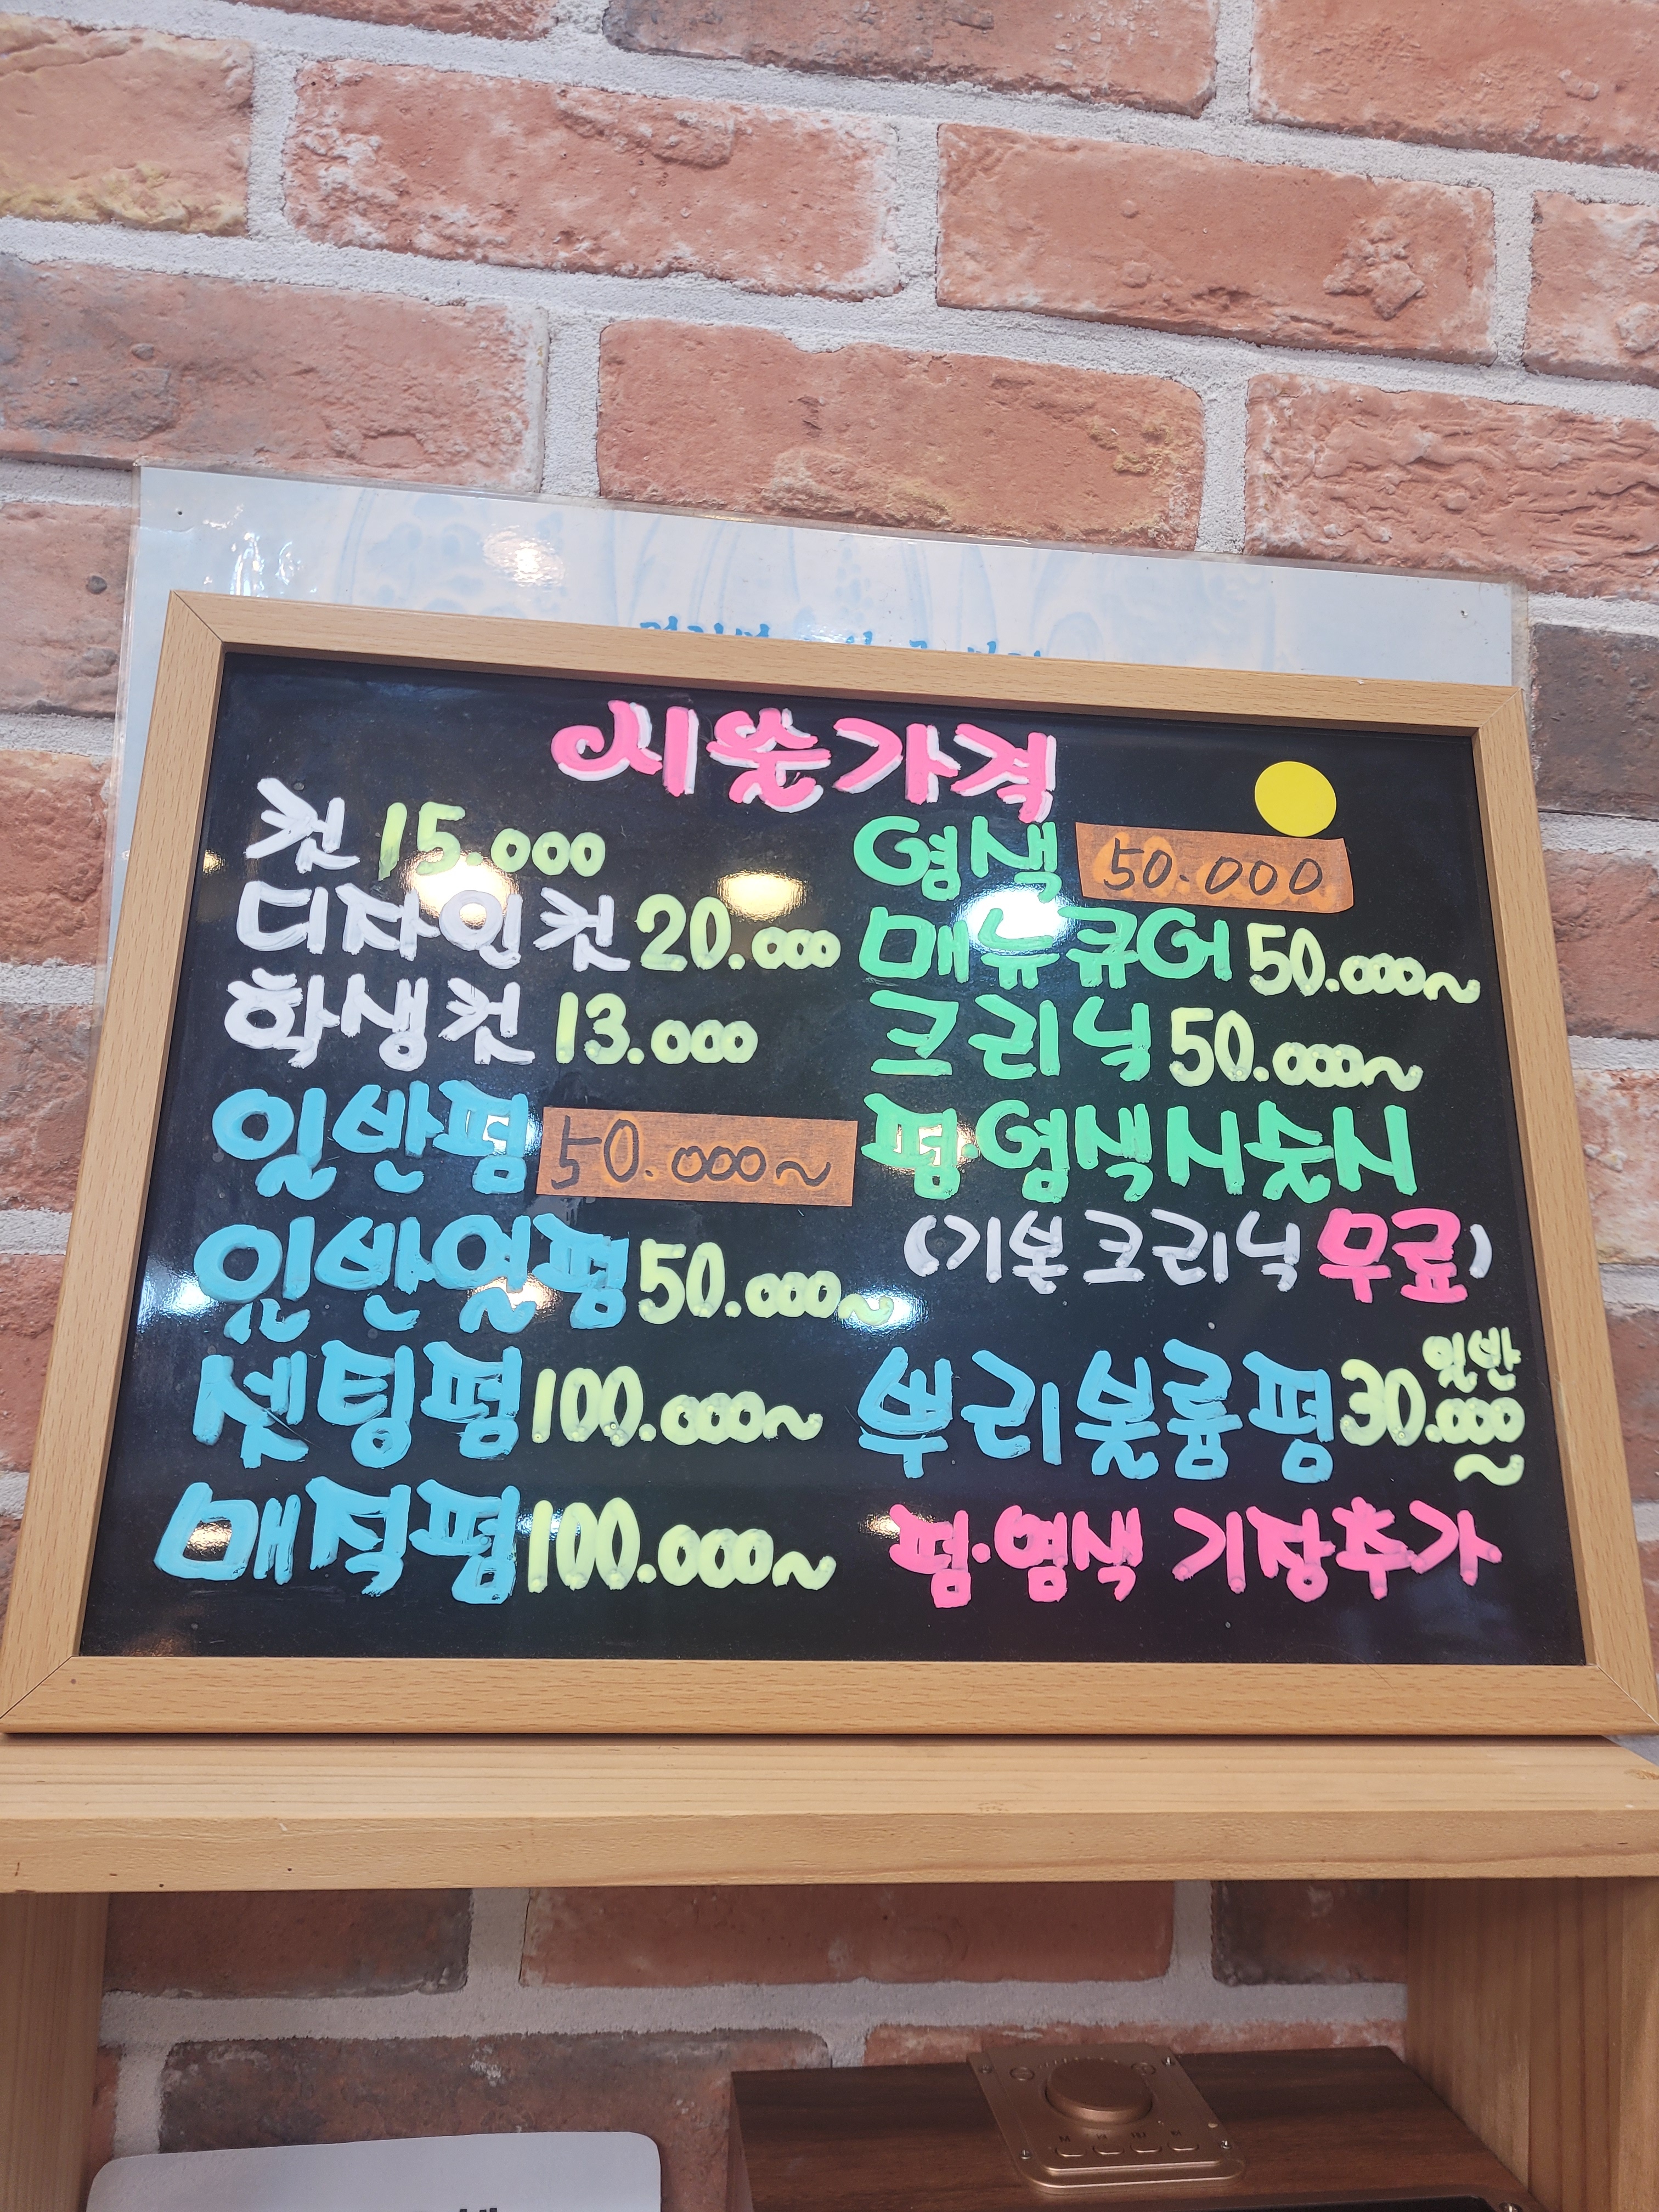 시술가격
컷 15.000
디자인컷 20.000
학생컷 13.000
일반펌 50.000~
일반열펌 50.000~
셋팅펌 100.000~
매직펌 100.000~
염색 50.000
매뉴큐어 50.000~
크리닉 50.000~
펌·염색시술시
(기본크리닉 무료)
뿌리볼륨펌 일반 30.000~
펌·염색 기장추가